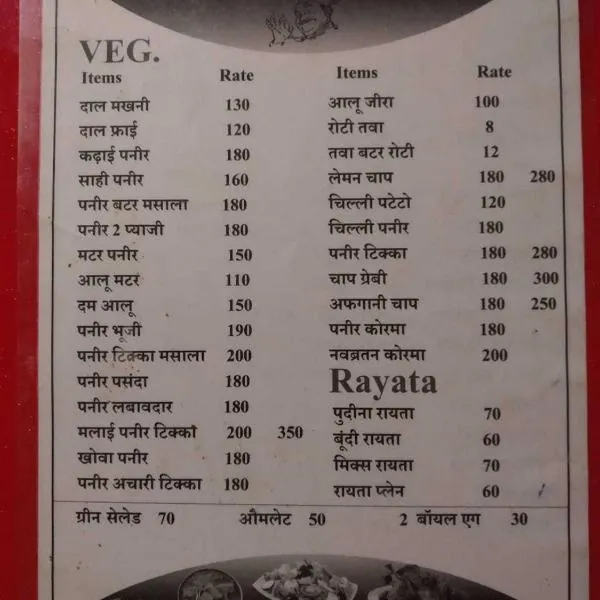 VEG.
Items Rate
दाल मखनी 130
दाल फ्राई 120
कढ़ाई पनीर 180
साही पनीर 160
पनीर बटर मसाला 180
पनीर 2 प्याजी 180
मटर पनीर 150
आलू मटर 110
दम आलू 150
पनीर भूजी 190
पनीर टिक्का मसाला 200
पनीर पसंदा 180
पनीर लबावदार 180
मलाई पनीर टिक्का 200 350
खोवा पनीर 180
पनीर अचारी टिक्का 180
Items Rate
आलू जीरा 100
रोटी तवा 8
तवा बटर रोटी 12
लेमन चाप 180 280
चिल्ली पटेटो 120
चिल्ली पनीर 180
पनीर टिक्का 180 280
चाप ग्रेबी 180 300
अफगानी चाप 180 250
पनीर कोरमा 180
नवब्रतन कोरमा 200
Rayata
पुदीना रायता 70
बूंदी रायता 60
मिक्स रायता 70
रायता प्लेन 60
ग्रीन सेलेड 70 औमलेट 50 2 बॉयल एग 30